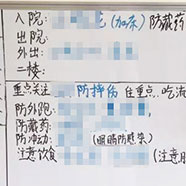 入院: (加床) 防藏药
出院:
外出:
二楼:
重点关注: 防摔伤 住重点. 吃流
防外跑:
防藏药:
防冲动: (眼睛防感染)
注意饮食 (注意用